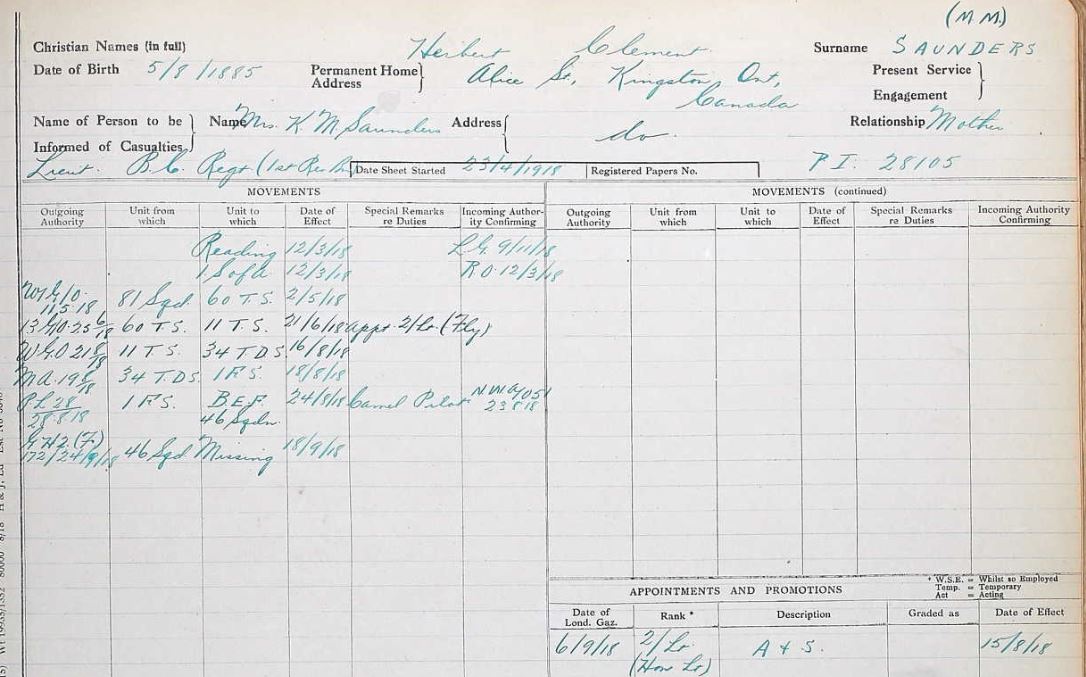 (M M.)
Christian Names (in full) Herbert Clement Surname SAUNDERS
Date of Birth 5/8/1885 Permanent Home Address Alice St., Kingston, Ont, Canada Present Service Engagement
Name of Person to be Informed of Casualties Name Mrs. K M Saunders Address do. Relationship Mother
Lieut. B.C. Regt (1st Res Bn Date Sheet Started 23/4/1918 Registered Papers No. P.I. 28105
MOVEMENTS MOVEMENTS (continued)
Outgoing Authority Unit from which Unit to which Date of Effect Special Remarks re Duties Incoming Authority Confirming Outgoing Authority Unit from which Unit to which Date of Effect Special Remarks re Duties Incoming Authority Confirming
Reading 12/3/18 L.G. 9/11/18
1 Sofa 12/3/18 R O 12/3/18
11.5.18 81 Sqd 60 T.S. 2/5/18
60 T.S. 11 T.S. 21/6/18 appt 2/Lt. (Fly)
11 T.S. 34 T.D.S. 16/8/18
34 T.D.S. 1 F.S. 18/8/18
28.8.18 1 F.S. B.E.F. 46 Sqdn. 24/8/18 Camel Pilot
172/24/9/18 46 Sqd Missing 18/9/18
* W.S.E. = Whilst so Employed
Temp. = Temporary
Act = Acting
APPOINTMENTS AND PROMOTIONS
Date of Lond. Gaz. Rank * Description Graded as Date of Effect
6/9/18 2/Lt. (Hon Lt) A & S. 15/8/18